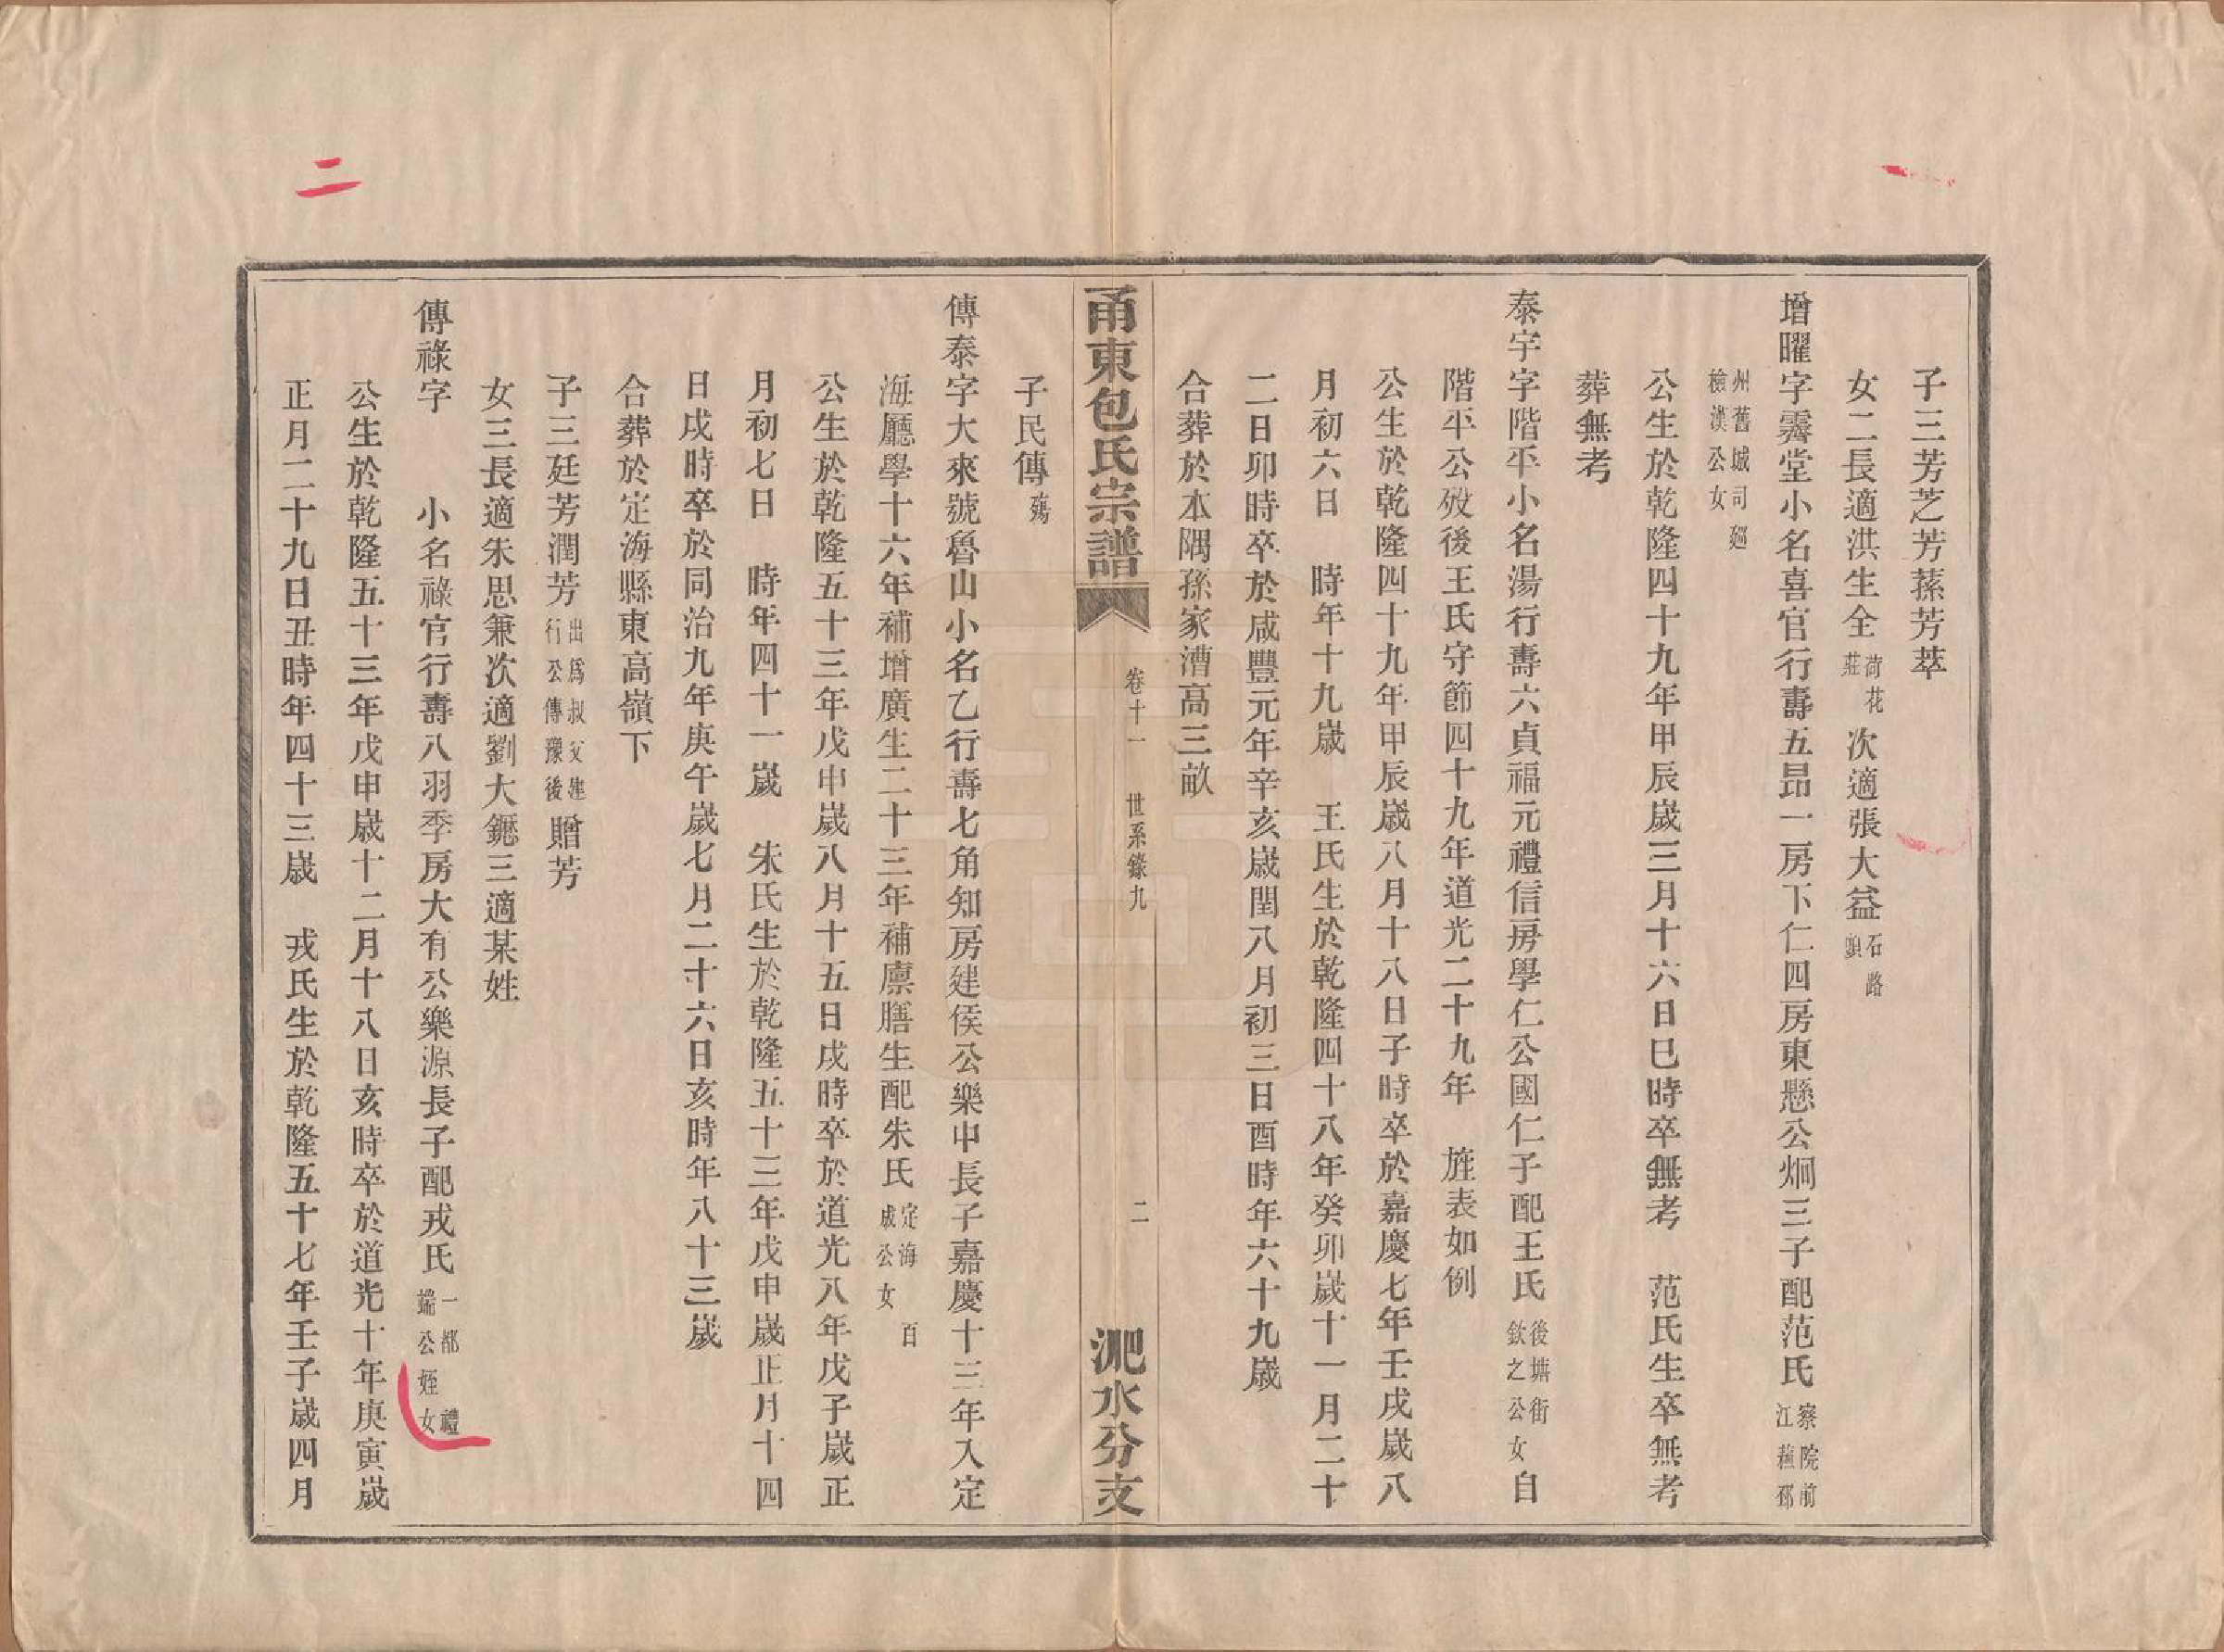 子三芳芝芳蓀芳萃
女二長適洪生全荷花莊次適張大益石路頭
增曜字霽堂小名喜官行壽五昂一房下仁四房東懸公炯三子配范氏察院前江蘇邳
州舊城司巡檢漢公女
公生於乾隆四十九年甲辰歲三月十六日巳時卒無考 范氏生卒無考
葬無考
泰宇字階平小名湯行壽六貞福元禮信房學仁公國仁子配王氏後塘街欽之公女自
階平公歿後王氏守節四十九年道光二十九年 旌表如例
公生於乾隆四十九年甲辰歲八月十八日子時卒於嘉慶七年壬戌歲八
月初六日 時年十九歲 王氏生於乾隆四十八年癸卯歲十一月二十
二日卯時卒於咸豐元年辛亥歲閏八月初三日酉時年六十九歲
合葬於本隅孫家漕高三畝
甬東包氏宗譜 卷十一 世系錄九 二 淝水分支
子民傳殤
傳泰字大來號魯山小名乙行壽七角知房建侯公樂申長子嘉慶十三年入定
海廳學十六年補增廣生二十三年補廩膳生配朱氏定海百成公女
公生於乾隆五十三年戊申歲八月十五日戌時卒於道光八年戊子歲正
月初七日 時年四十一歲 朱氏生於乾隆五十三年戊申歲正月十四
日戌時卒於同治九年庚午歲七月二十六日亥時年八十三歲
合葬於定海縣東高嶺下
子三廷芳潤芳出爲叔父建行公傳豫後贈芳
女三長適朱思兼次適劉大鏕三適某姓
傳祿字 小名祿官行壽八羽季房大有公樂源長子配戎氏一都禮端公姪女
公生於乾隆五十三年戊申歲十二月十八日亥時卒於道光十年庚寅歲
正月二十九日丑時年四十三歲 戎氏生於乾隆五十七年壬子歲四月
二